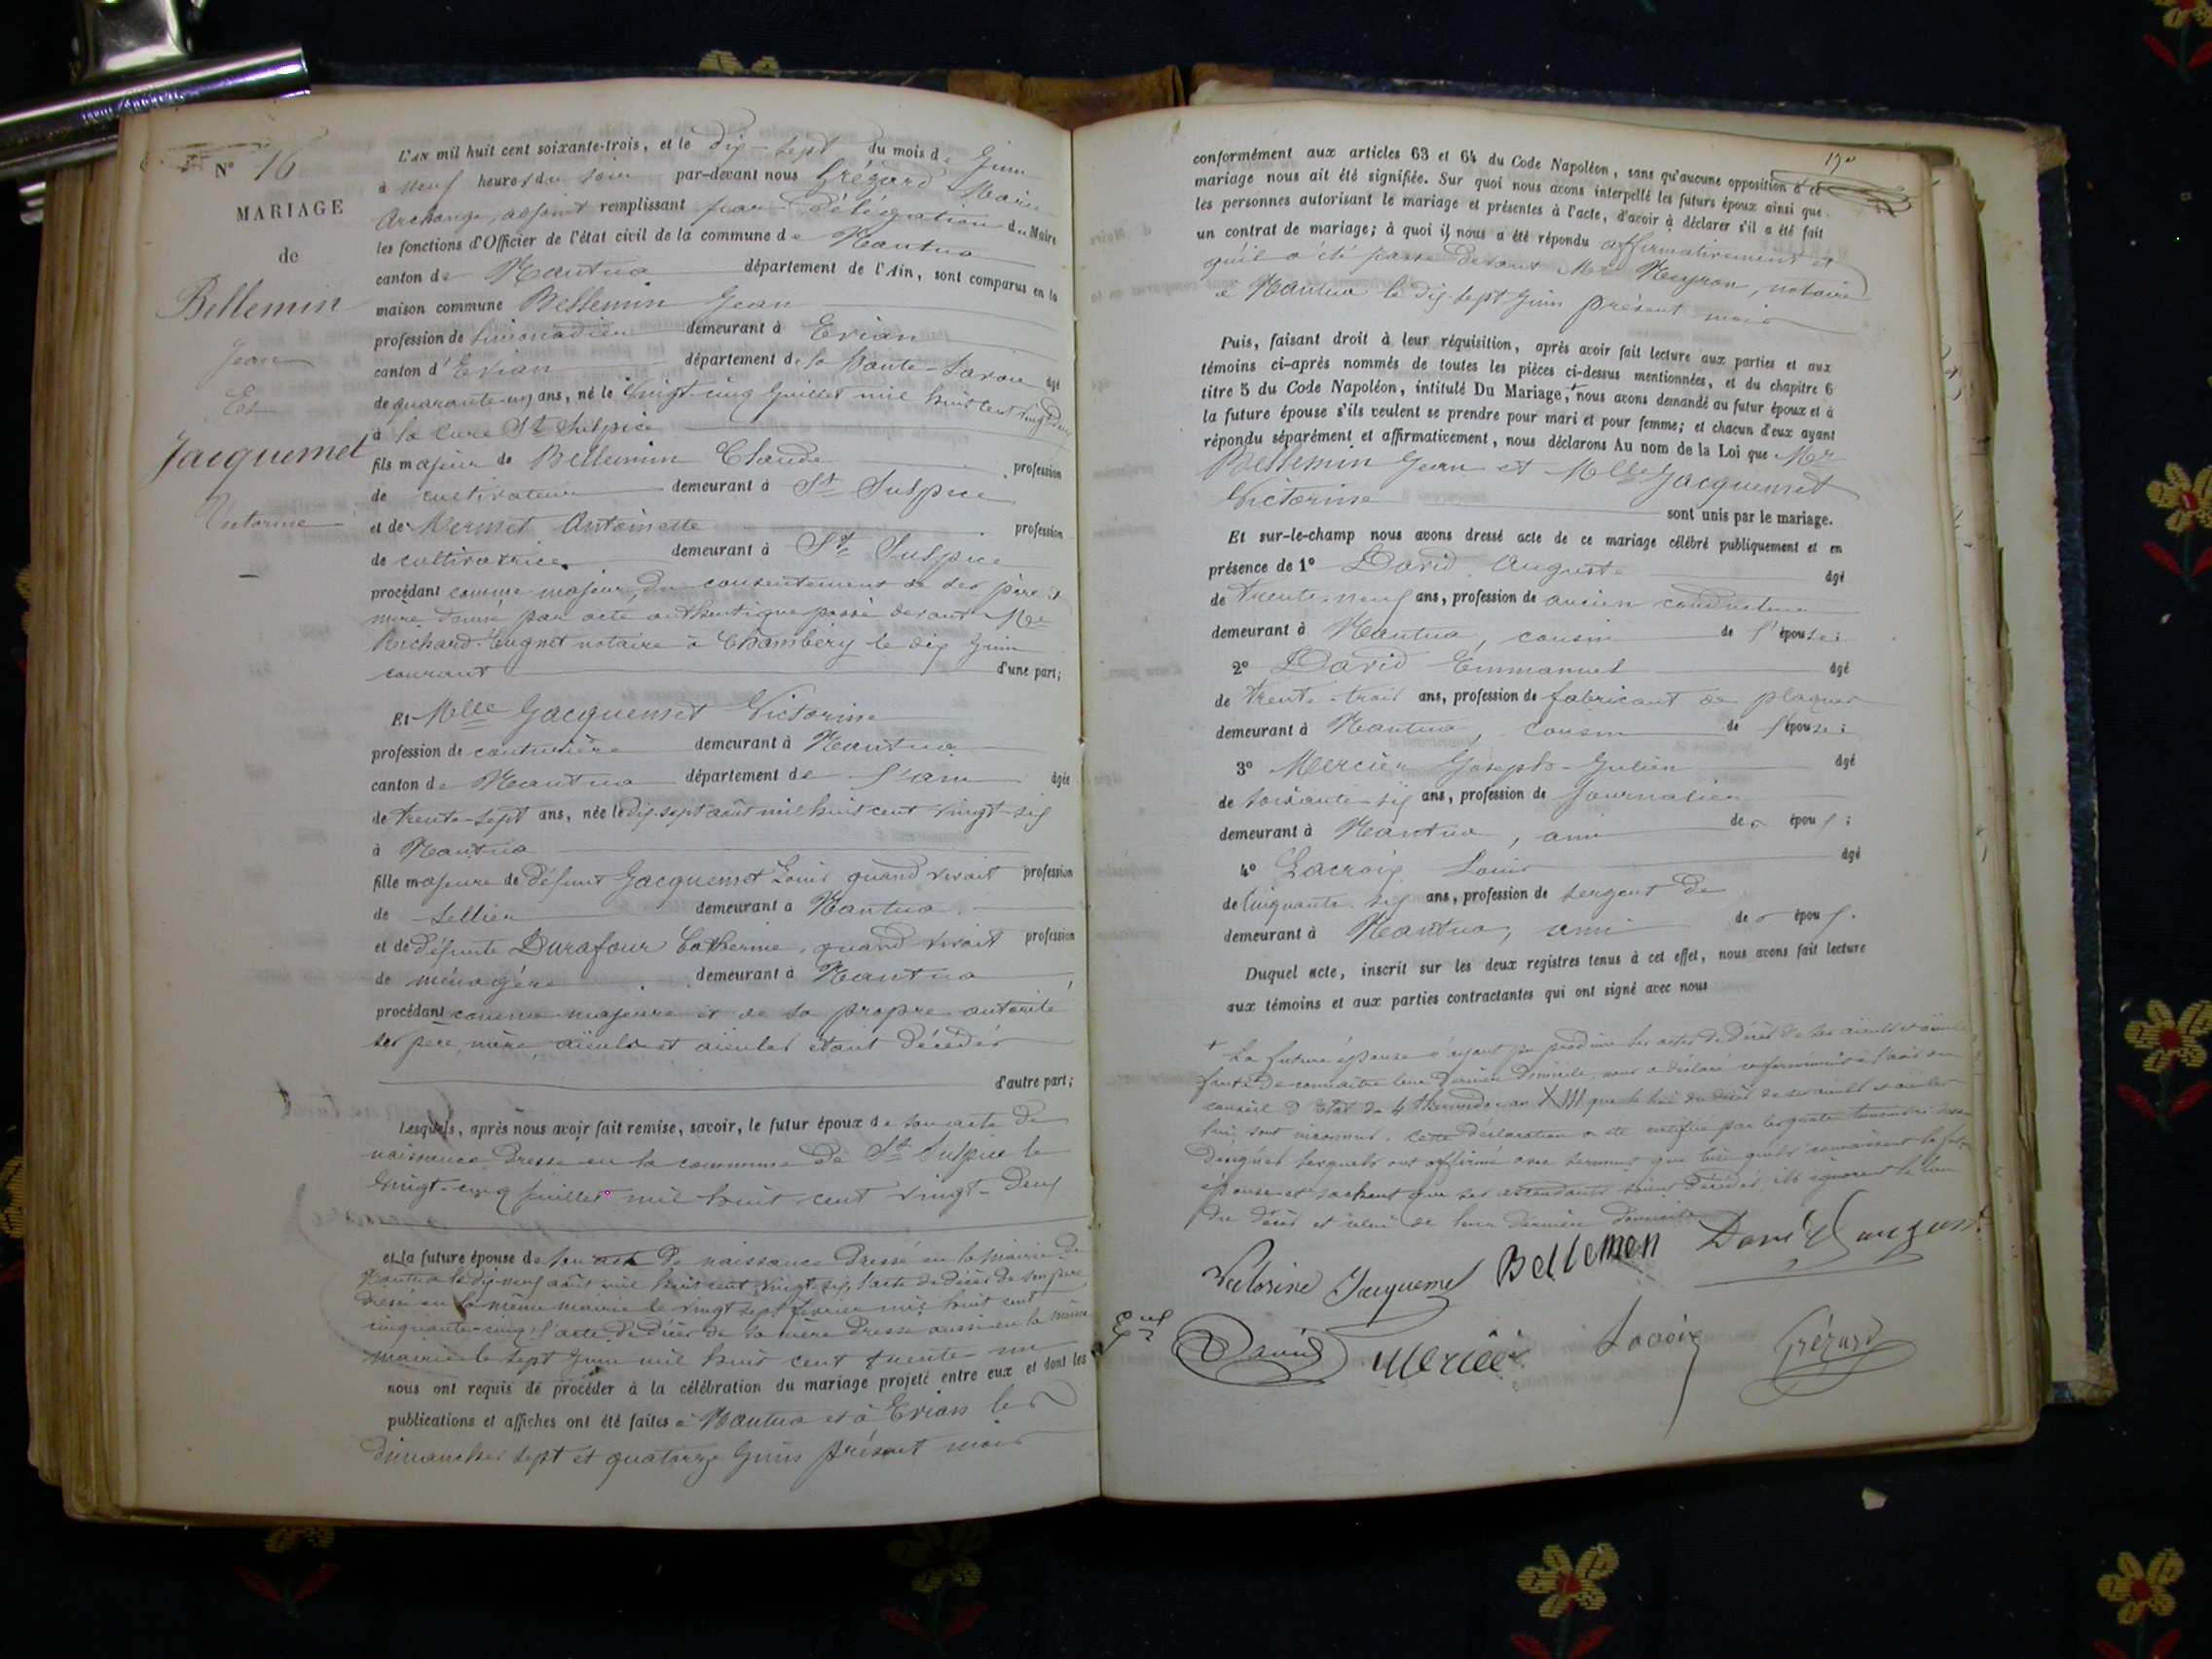 N° 16
MARIAGE
de
Bellemin
Jean
Et
Jacquemet
Victorine
L'AN mil huit cent soixante-trois, et le dix-sept du mois de Juin
à neuf heures du soir par-devant nous Grézard Marie
Archange, adjoint remplissant par délégation du Maire
les fonctions d'Officier de l'état civil de la commune de Nantua
canton de Nantua département de l'Ain, sont comparus en la
maison commune Bellemin Jean
profession de limonadier demeurant à Evian
canton d'Evian département de la Haute-Savoie âgé
de quarante un ans, né le vingt-cinq Juillet mil huit cent vingt deux
à la cure St Sulpice
fils majeur de Bellemin Claude profession
de cultivateur demeurant à St Sulpice
et de Mermet Antoinette profession
de cultivatrice demeurant à St Sulpice
procédant comme majeur, du consentement de ses père et
mère donné par acte authentique passé devant Me
notaire à Chambéry le dix Juin
courant d'une part;
Et Melle Jacquemet Victorine
profession de couturière demeurant à Nantua
canton de Nantua département de l'ain âgée
de trente-sept ans, née le dix-sept août mil huit cent vingt-six
à Nantua
fille majeure de défunt Jacquemet Louis quand vivait profession
de sellier demeurant à Nantua
et de défunte Durafour Catherine, quand vivait profession
de ménagère demeurant à Nantua
procédant comme majeure et de sa propre autorité
ses père, mère, aïeuls et aïeules étant décédés
d'autre part;
Lesquels, après nous avoir fait remise, savoir, le futur époux de son acte de
naissance dressé en la commune de St Sulpice le
vingt-cinq juillet mil huit cent vingt-deux
et la future épouse de son acte de naissance dressé en la mairie de
Nantua le dix-neuf août mil huit cent vingt-six, l'acte de décès de son père
dressé en la même mairie le vingt sept février mil huit cent
cinquante-cinq, l'acte de décès de sa mère dressé aussi en la même
mairie le sept Juin mil huit cent trente un
nous ont requis de procéder à la célébration du mariage projeté entre eux et dont les
publications et affiches ont été faites à Nantua et à Evian les
dimanches sept et quatorze Juin présent mois
conformément aux articles 63 et 64 du Code Napoléon, sans qu'aucune opposition à ce
mariage nous ait été signifiée. Sur quoi nous avons interpellé les futurs époux ainsi que
les personnes autorisant le mariage et présentes à l'acte, d'avoir à déclarer s'il a été fait
un contrat de mariage; à quoi il nous a été répondu affirmativement et
qu'il a été passé devant Me Neyron, notaire
à Nantua le dix-sept Juin présent mois
Puis, faisant droit à leur réquisition, après avoir fait lecture aux parties et aux
témoins ci-après nommés de toutes les pièces ci-dessus mentionnées, et du chapitre 6
titre 5 du Code Napoléon, intitulé Du Mariage, + nous avons demandé au futur époux et à
la future épouse s'ils veulent se prendre pour mari et pour femme; et chacun d'eux ayant
répondu séparément et affirmativement, nous déclarons Au nom de la Loi que Mr
Bellemin Jean et Melle Jacquemet
Victorine
sont unis par le mariage.
Et sur-le-champ nous avons dressé acte de ce mariage célébré publiquement et en
présence de 1° David Auguste âgé
de trente-neuf ans, profession de ancien conducteur
demeurant à Nantua, cousin de l'épouse;
2° David Emmanuel âgé
de trente-trois ans, profession de fabricant de plaques
demeurant à Nantua, cousin de l'épouse;
3° Mercier Joseph-Julien âgé
de soixante-six ans, profession de Journalier
demeurant à Nantua, ami des époux;
4° Lacroix Louis âgé
de cinquante-six ans, profession de sergent de
demeurant à Nantua, ami des époux.
Duquel acte, inscrit sur les deux registres tenus à cet effet, nous avons fait lecture
aux témoins et aux parties contractantes qui ont signé avec nous
+ La future épouse n'ayant pu produire les actes de décès de ses aïeuls et aïeules
faute de connaître leur dernier domicile, nous a déclaré conformément à l'avis du
conseil d'état du 4 thermidor an XIII que le lieu du décès de ses aïeuls et aïeules
sont inconnus. Cette déclaration a été certifiée par les quatre témoins
désignés lesquels ont affirmé avec serment que bien qu'ils connaissent la future
épouse et sachent que ses ascendants soient décédés, ils ignorent le lieu
du décès et celui de leur dernier domicile
Victorine Jacquemet Bellemen David
Eml David Mercié Lacroix Grézard